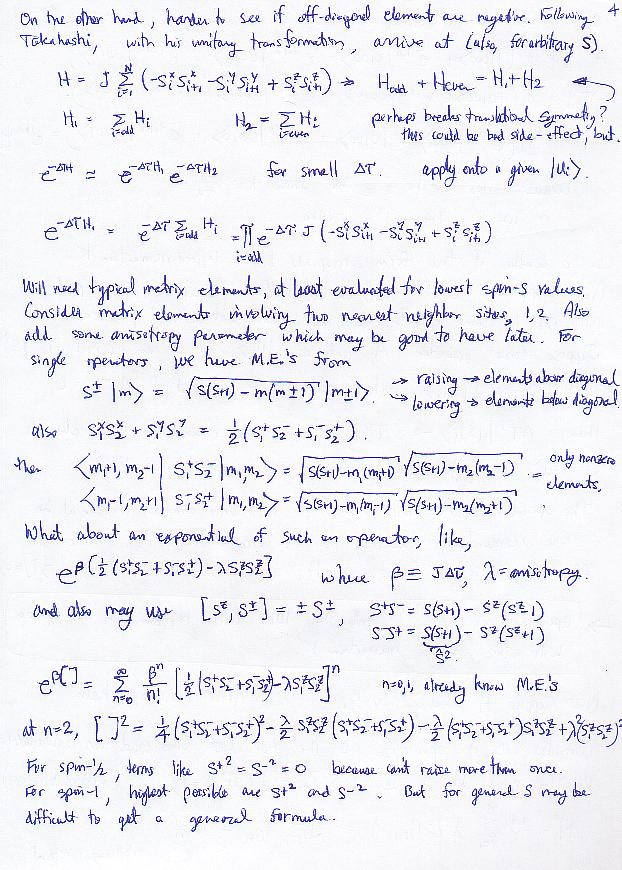 4
On the other hand, harder to see if off-diagonal elements are negative. Following
Takahashi, with his unitary transformation, arrive at (also, for arbitrary S).
H = J Σ_{i=1}^{N} (-S_i^x S_{i+1}^x - S_i^y S_{i+1}^y + S_i^z S_{i+1}^z) → H_odd + H_even = H_1 + H_2
H_1 = Σ_{i=odd} H_i   H_2 = Σ_{i=even} H_i   perhaps breaks translational symmetry?
this could be bad side-effect, but.
e^{-ΔτH} ≈ e^{-ΔτH_1} e^{-ΔτH_2}   for small Δτ.   apply onto a given |U_i>.
e^{-ΔτH_1} = e^{-Δτ Σ_{i=odd} H_i} = Π_{i=odd} e^{-Δτ J (-S_i^x S_{i+1}^x - S_i^y S_{i+1}^y + S_i^z S_{i+1}^z)}
Will need typical matrix elements, at least evaluated for lowest spin-S values.
Consider matrix elements involving two nearest neighbor sites, 1,2. Also
add some anisotropy parameter which may be good to have later. For
single operators, we have M.E.'s from
S^± |m> = √(S(S+1) - m(m±1)) |m±1>.   → raising → elements above diagonal
→ lowering → elements below diagonal.
also S_1^x S_2^x + S_1^y S_2^y = ½ (S_1^+ S_2^- + S_1^- S_2^+).
then <m_1+1, m_2-1 | S_1^+ S_2^- | m_1, m_2> = √(S(S+1) - m_1(m_1+1)) √(S(S+1) - m_2(m_2-1)) = only nonzero
<m_1-1, m_2+1 | S_1^- S_2^+ | m_1, m_2> = √(S(S+1) - m_1(m_1-1)) √(S(S+1) - m_2(m_2+1)) elements.
What about an exponential of such an operator, like,
e^{β[½(S_1^+ S_2^- + S_1^- S_2^+) - λ S_1^z S_2^z]}   where β ≡ JΔτ, λ = anisotropy.
and also may use [S^z, S^±] = ± S^±,   S^+S^- = S(S+1) - S^z(S^z-1)
S^-S^+ = S(S+1) - S^z(S^z+1)
S^2.
e^{β[]} = Σ_{n=0}^{∞} β^n/n! [½(S_1^+ S_2^- + S_1^- S_2^+) - λ S_1^z S_2^z]^n   n=0,1, already know M.E.'s
at n=2, [ ]^2 = ¼ (S_1^+ S_2^- + S_1^- S_2^+)^2 - λ/2 S_1^z S_2^z (S_1^+ S_2^- + S_1^- S_2^+) - λ/2 (S_1^+ S_2^- + S_1^- S_2^+) S_1^z S_2^z + λ^2 (S_1^z S_2^z)^2
For spin-½, terms like S^{+2} = S^{-2} = 0 because can't raise more than once.
For spin-1, highest possible are S^{+2} and S^{-2}. But for general S may be
difficult to get a general formula.